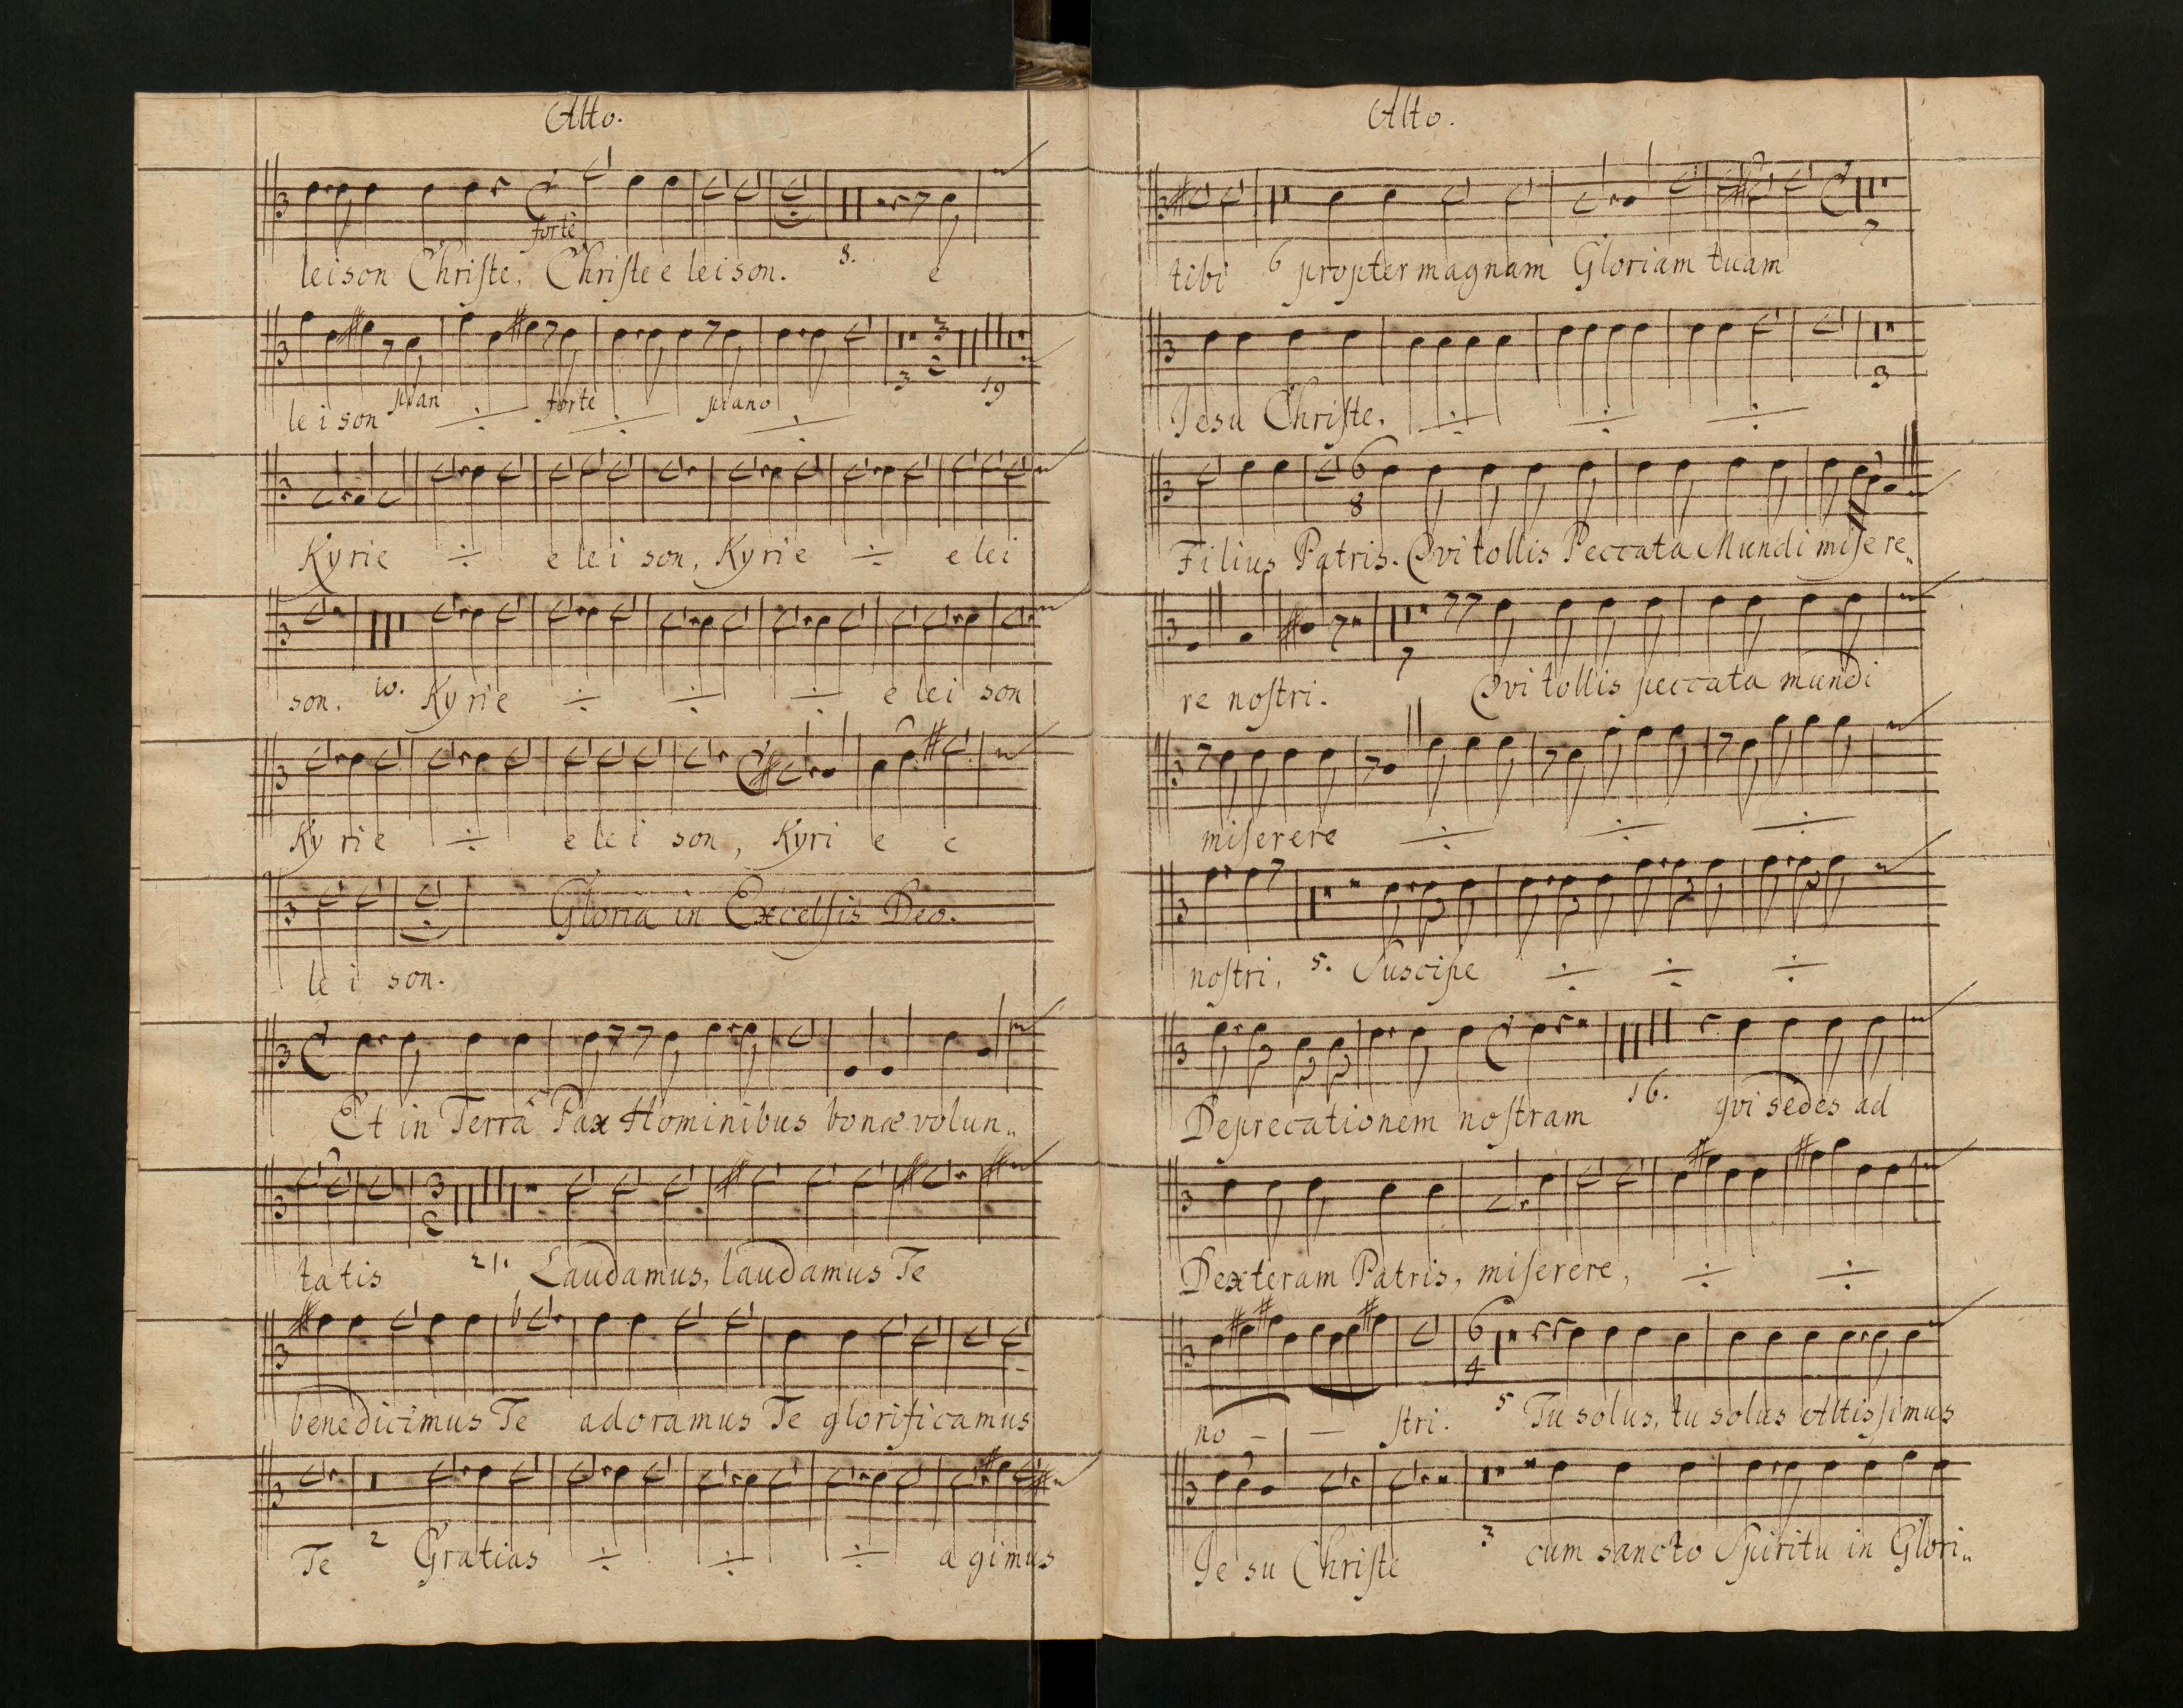 Alto.
forte
leison Christe, Christe e leison. 8. e
plan forte piano 3 19
le i son ÷ ÷ ÷
Kyrie ÷ e le i son, Kyrie ÷ e lei
son. 10. Kyrie ÷ ÷ ÷ e lei son
Ky rie ÷ e le i son, Kyri e e
Gloria in Excelsis Deo.
le i son.
Et in Terrâ Pax Hominibus bonæ volun„
ta tis 21. Laudamus, laudamus Te
benedicimus Te adoramus Te glorificamus
Te 2 Gratias ÷ ÷ ÷ a gimus
Alto.
7
tibi 6 propter magnam Gloriam tuam
3
Jesu Christe. ÷ ÷ ÷
6
8
Filius Patris. Qvi tollis Peccata Mundi misere„
7
re nostri. Qvi tollis peccata mundi
miserere ÷ ÷ ÷
nostri, 5. Suscipe ÷ ÷ ÷
Deprecationem nostram 16. qvi sedes ad
Dexteram Patris, miserere, ÷ ÷
6
4
no – – stri. 5 Tu solus, tu solus Altissimus
Je su Christe 3 cum sancto Spiritu in Glori„